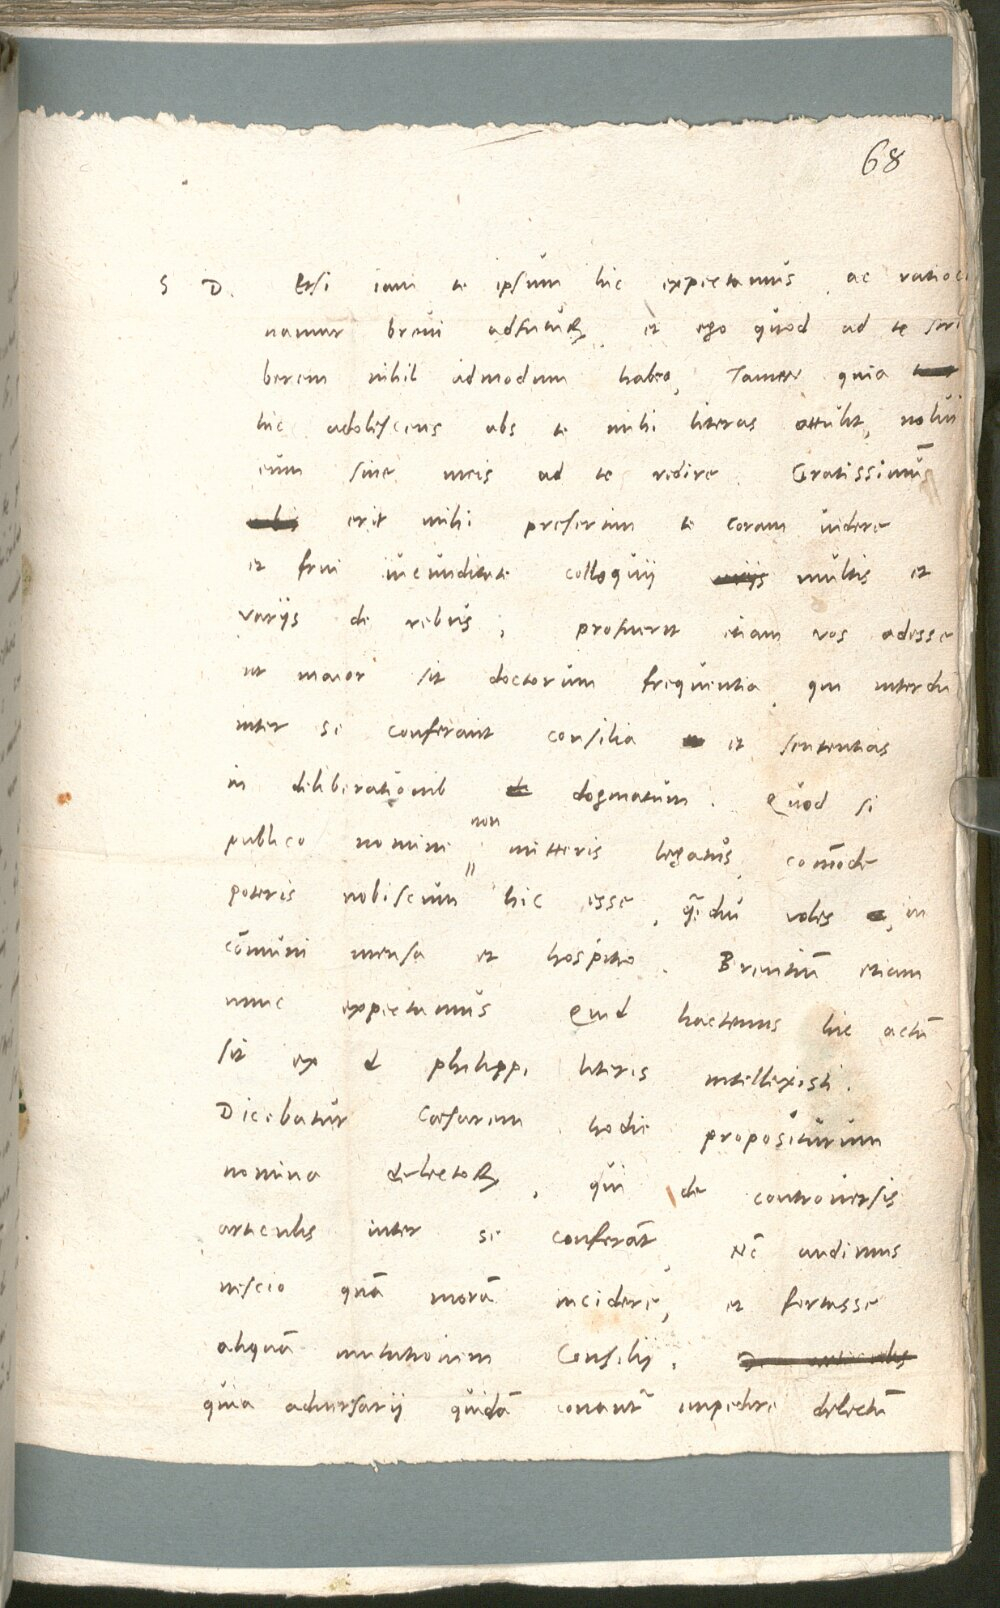 68
S D. Etsi iam te ipsum hic expectamus, ac ratioci
namur brevi adfuturꝝ, et ego quod ad te scri
berem nihil admodum habeo, Tamen quia
hic adolescens abs te mihi literas attulit, nolui
eum sine meis ad te redire. Gratissimū
erit mihi presertim te coram videre
et frui iucunditate colloquij varijs multis et
varijs de rebus, profuerit etiam vos adesse
ut maior sit doctorum frequentia, qui interdū
inter se conferant consilia et sententias
in deliberationib de dogmatum. Quod si
non
publico nomine mitteris legatus, com̄ode
poteris nobiscum hic esse, quādiu voles, in
cōmuni mensa et hospitio. Brentiū etiam
nunc expectamus Quid hactenus hic actū
sit ex d philippi literis intellexisti.
Dicebatur Caesarem hodie propositurum
nomina delectoꝝ, qui de controversis
articulis inter se conferāt, Nc̄ audimus
nescio quā morā incidere, et fortasse
aliquā mutationem Consilij. De articulis
quia adversarij quidā conant᷑ impedire delectū